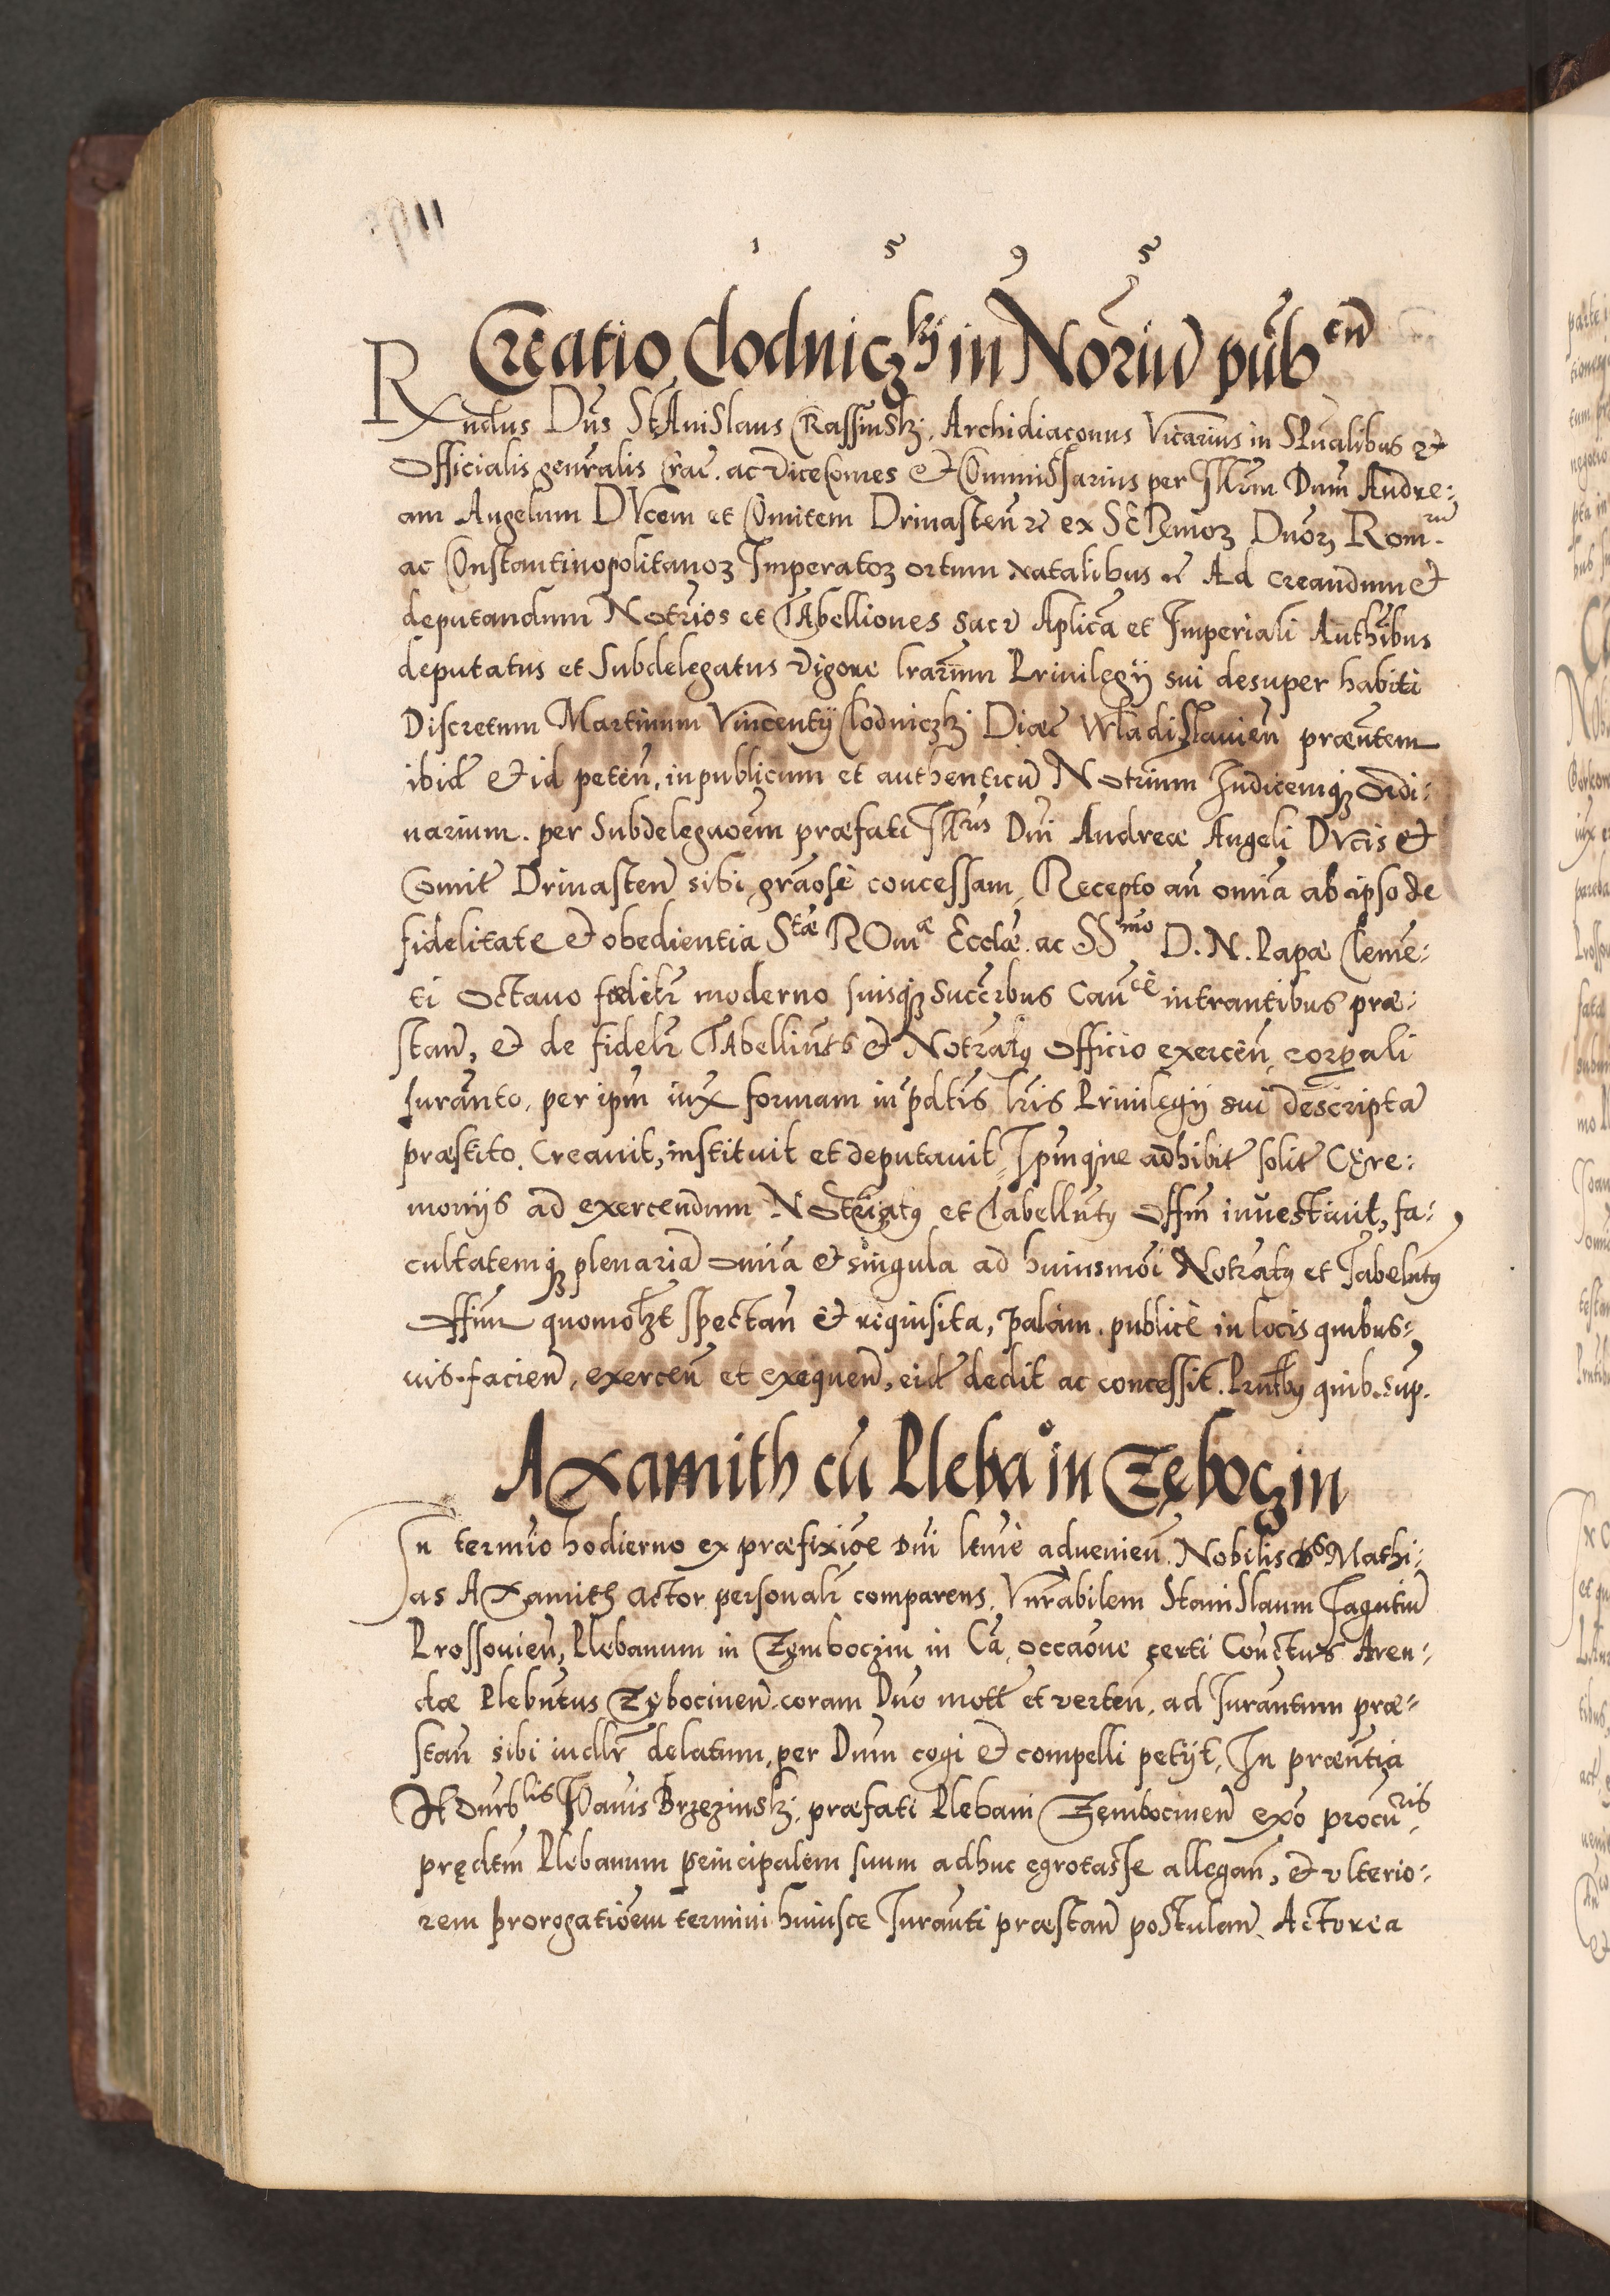 1 5 9 5
Creatio Clodniczkj in Nōriū pūb cū
Rx̄ndus Dn̄s StAniSlaus CraSsinSkj. Archidiaconus Vicarius in SPūalibus et
Officialis gen̄ralis Crac̄. ac ViceComes et Com̄miSsarius per Illr̄m Dnm̄ Andre:
am Angelum DVcem et Comitem Drinasteñ rē ex SERemoꝝ Dnōꝝ Rom. rū
ac Constantinopolitanoꝝ Imperatoꝝ ortum natalibus rē Ad creandum et
deputandum Notr̄ios et TAbelliones sacr̄ Aplicā et Imperiali Auth̄ibus
deputatus et Subdelegatus Vigore lrar̄um Priuilegij sui desuper habiti
Discretum Martinum Vincentij Clodniczkj Diæc̄ WladiSlauieñ præn̄tem
ibid̄ et id peteñ, in publicum et authenticū Notr̄ium Iudicemqꝫ Ordi:
narium. per Subdelegaōem præfati Illr̄is Dn̄i Andreæ Angeli DVcis et
Comit̄ Drinasteñ sibi grāosè concessam, Recepto añ om̄ia ab ipso de
fidelitate et obedientia Stæ ROmæ Eccl̄æ. ac SSmo D. N. Papæ Cleme:
ti Octauo fœlitr̄ moderno suisqꝫ Succr̄bus Canc̄è intrantibus præ:
stañ, et de fidelr̄ TAbelliun̄ts et Notrāts Officio exerceñ, corp̄ali
Iurān̄to, per ipm̄ iux̄ formam in p̄dtis lr̄is Priuilegij sui descriptā
præstito. Creauit, instituit et deputauit, Ipm̄que adhibit̄ solit̄ Cęre:
monijs ad exercendum Notriātꝰ et Tabelln̄tꝰ Offm̄ inuestiuit, fa:
cultatemqꝫ plenariā om̄ia et singula ad huiusmōi Notrātꝰ et Tabeln̄tꝰ
Offm̄ quomolꝫt spectañ et requisita, palàm. publicè in locis quibus:
uis. facieñ, exerceñ et exequeñ, eid̄ dedit ac concessit. Prn̄tbꝰ quib. Sup.
AXamith cū Plebā in Zęboczin
In term̄io hodierno ex præfixiōe Dn̄i ltm̄è adueniēn. Nobilis Mathi:
as AXamith Actor personalr̄ comparens. Vnr̄abilem StaniSlaum Jagutiū
Prossouieñ, Plebanum in Zęmboczin in Cā, occāone certi Conctꝰs Aren:
dæ Plebn̄tus Zębocineñ. coram Dn̄o mott̄ et verteñ, ad Iuran̄tum præ:
stañ sibi iudlr̄ delatum, per Dnm̄ cogi et compelli petijt, In præn̄tia
Honrb̄lis Joannis Brzęzinskj. præfati Plebani Zęmbocineñ exō procū ris,
prędtm̄ Plebanum principalem suum adhuc egrotasse allegañ, et vlterio:
rem prorogatiōem termini huiusce Iuran̄ti præstañ postulañ. Actorea